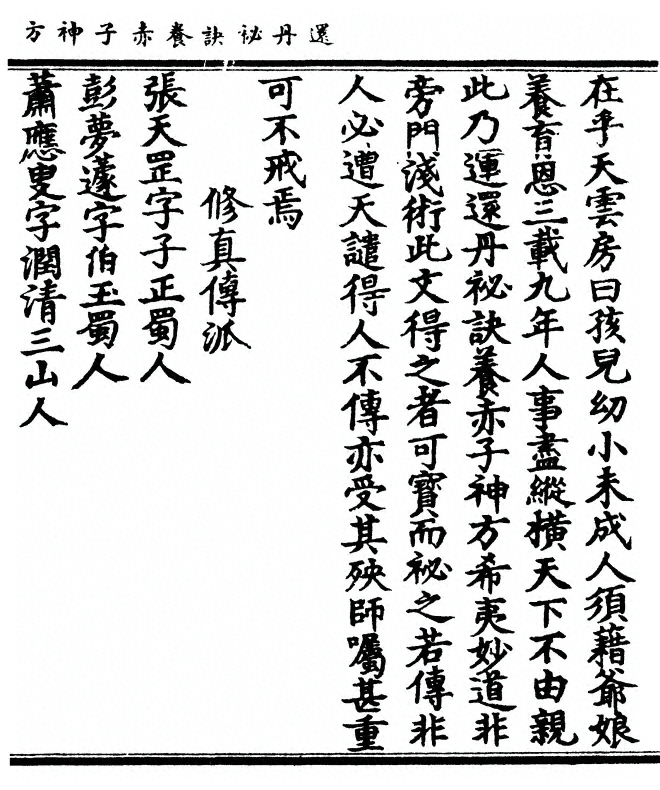 還丹祕訣養赤子神方
在乎天雲房曰孩兒幼小未成人須藉爺娘
養育恩三載九年人事盡縱橫天下不由親
此乃運還丹祕訣養赤子神方希夷妙道非
旁門淺術此文得之者可寶而祕之若傳非
人必遭天譴得人不傳亦受其殃師囑甚重
可不戒焉
修真傳派
張天罡字子正蜀人
彭夢蘧字伯玉蜀人
蕭應叟字潤清三山人